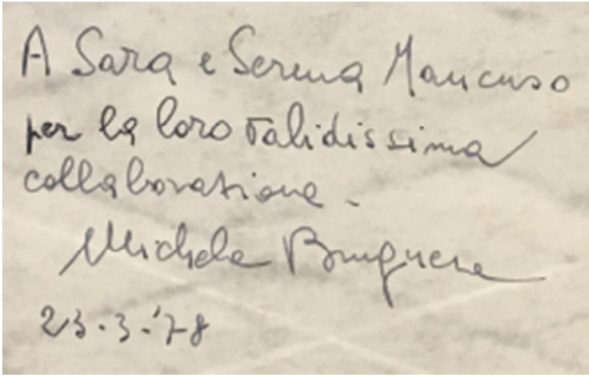 A Sara e Serena Mancuso
per la loro validissima
collaborazione.
Michele Bruguera
23.3.'78